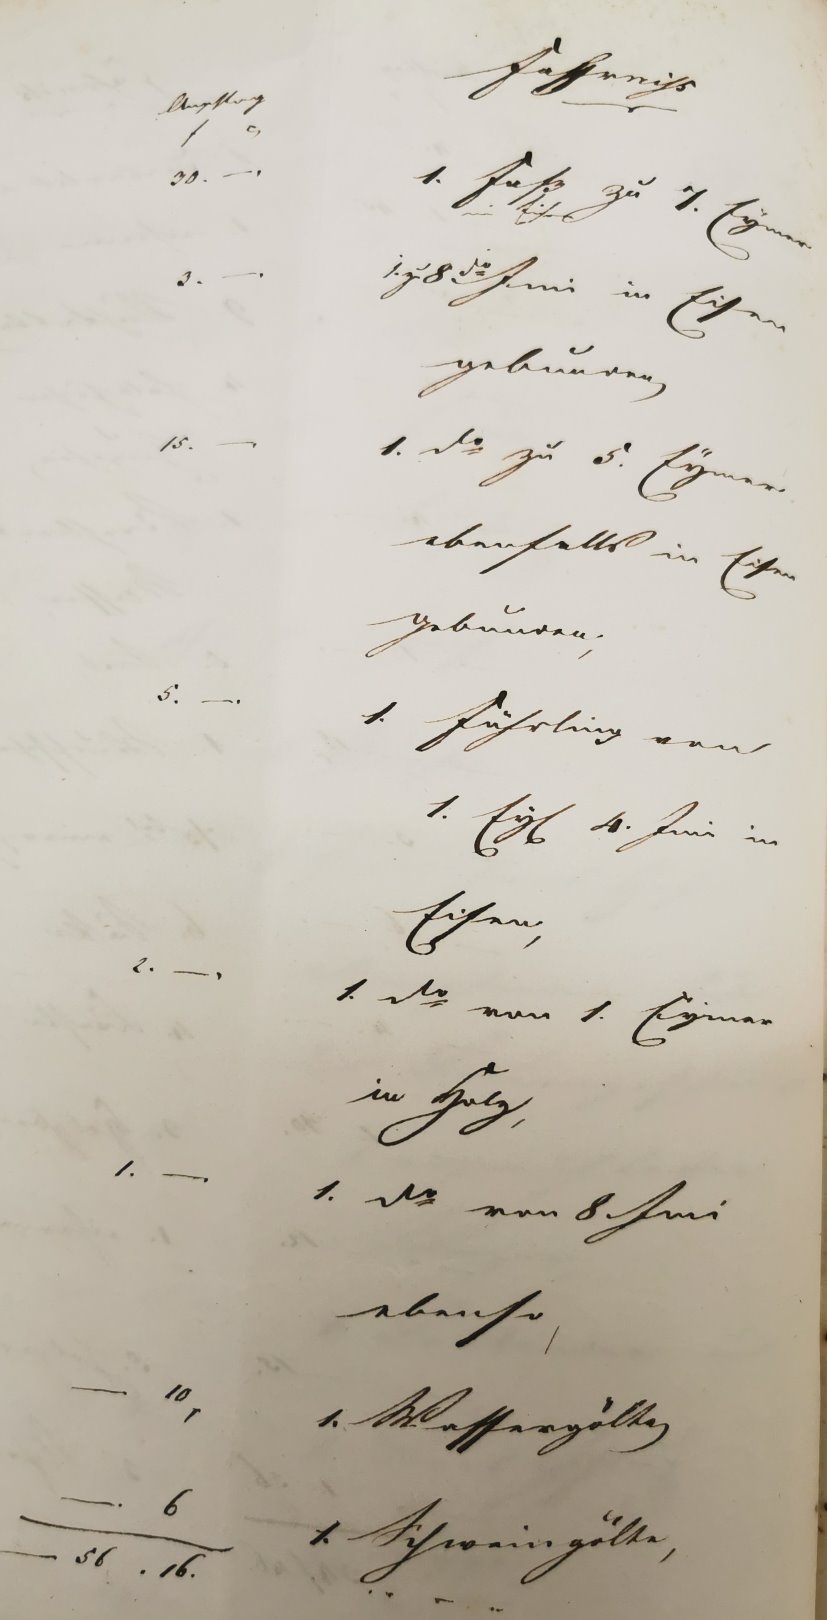 Anschlag
30. — 1. Faß zu 7. Eymer
in Eisen
3. — 1. zu 8 do Imi in Eisen
gebunden,
15. — 1. do zu 5. Eymer
ebenfalls in Eisen
gebunden,
5. — 1. Führling von
1. Eyl 4. Imi in
Eisen,
2. — 1. do von 1. Eymer
in Holz,
1. — 1. do von 8. Imi
ebenso,
— 10, 1. Wassergölte,
—. 6 1. Schweingölte,
— 56. 16.